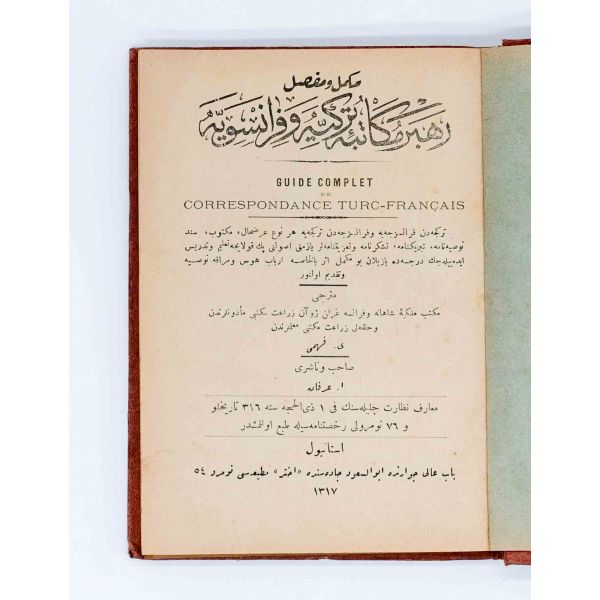 مكمل و مفصل
رهبر مكاتبهٔ تركيه و فرانسويه
GUIDE COMPLET
DE
CORRESPONDANCE TURC-FRANÇAIS
تركجه‌دن فرانسزجه‌يه و فرانسزجه‌دن تركجه‌يه هر نوع عرضحال، مكتوب، سند
توصيه‌نامه، تبريكنامه، تشكرنامه و تعزيتنامه‌لر يازمق اصولنى پك قولايجه تعليم و تدريس
ايده‌بيله‌جك درجه‌ده يازيلان بو مكمل اثر بالخاصه ارباب هوس و مراقه توصيه
و تقديم اولنور
مترجمى
مكتب ملكيهٔ شاهانه و فرانسه غران ژوآن زراعت مكتبى مأذونلرندن
و حلقه‌لى زراعت مكتبى معلمرندن
ى. فهمى
صاحب و ناشرى
ا. عرفان
معارف نظارت جليله‌سنك فى ١ ذى الحجه سنه ٣١٦ تاريخلو
و ٧٦ نومرولى رخصتنامه‌سيله طبع اولنمشدر
استانبول
باب عالى جوارنده ابو السعود جاده‌سنده «اختر» مطبعه‌سى نومرو ٥٤
١٣١٧